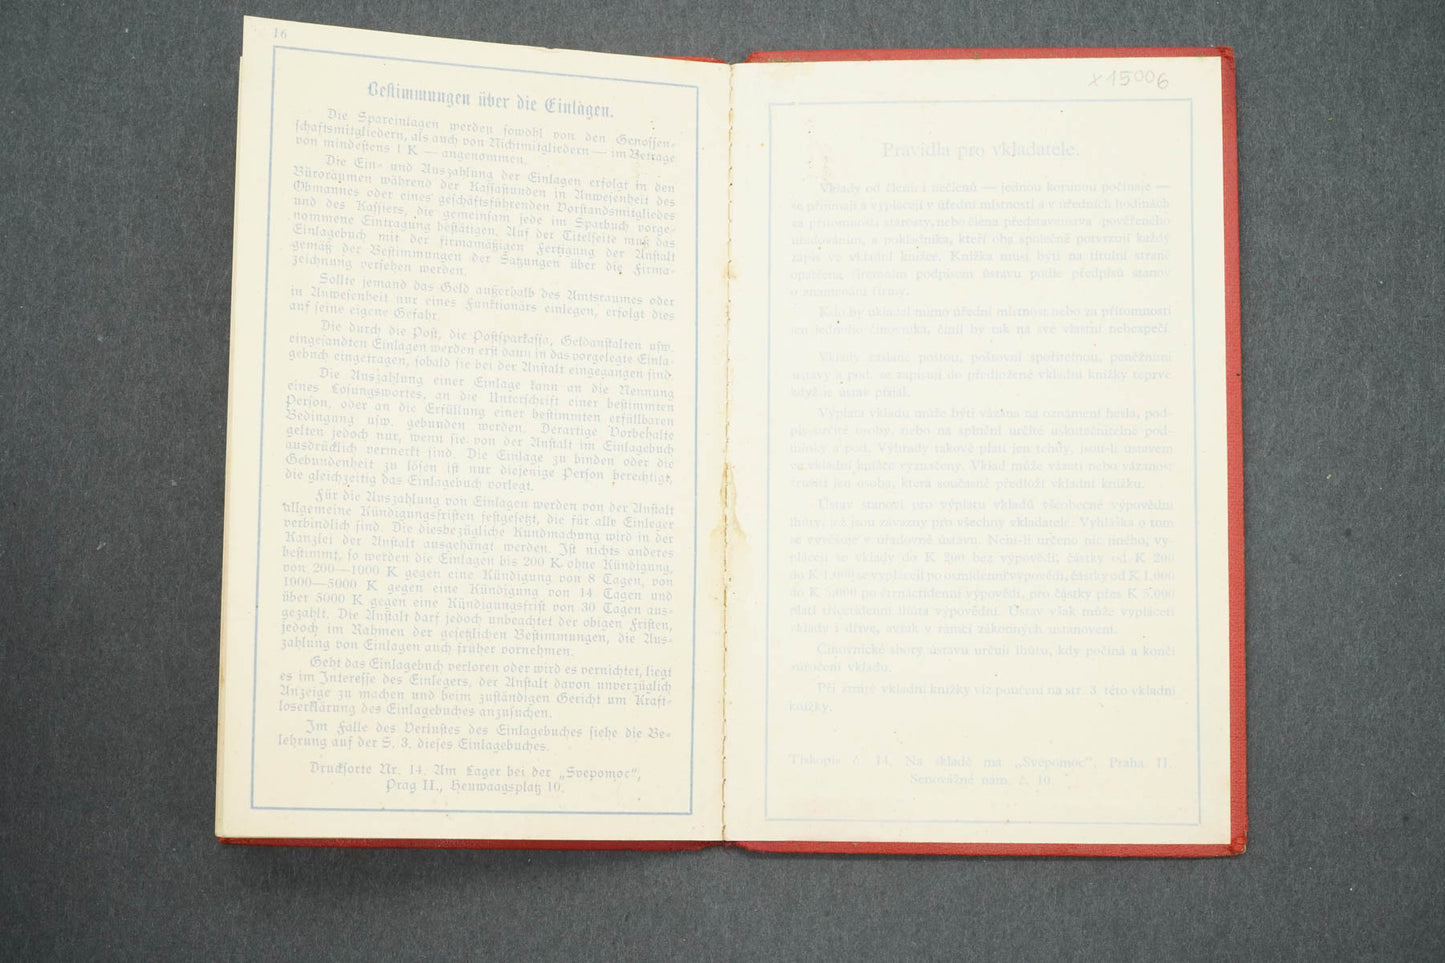 16
Bestimmungen über die Einlagen.
Die Spareinlagen werden sowohl von den Genossen-
schaftsmitgliedern, als auch von Nichtmitgliedern — im Betrage
von mindestens 1 K — angenommen.
Die Ein- und Auszahlung der Einlagen erfolgt in den
Büroräumen während der Kassastunden in Anwesenheit des
Obmannes oder eines geschäftsführenden Vorstandsmitgliedes
und des Kassiers, die gemeinsam jede im Sparbuch vorge-
nommene Eintragung bestätigen. Auf der Titelseite muß das
Einlagebuch mit der firmamäßigen Fertigung der Anstalt
gemäß der Bestimmungen der Satzungen über die Firma-
zeichnung versehen werden.
Sollte jemand das Geld außerhalb des Amtsraumes oder
in Anwesenheit nur eines Funktionärs einlegen, erfolgt dies
auf seine eigene Gefahr.
Die durch die Post, die Postsparkassa, Geldanstalten usw.
eingesandten Einlagen werden erst dann in das vorgelegte Einla-
gebuch eingetragen, sobald sie bei der Anstalt eingegangen sind.
Die Auszahlung einer Einlage kann an die Nennung
eines Losungswortes, an die Unterschrift einer bestimmten
Person, oder an die Erfüllung einer bestimmten erfüllbaren
Bedingung usw. gebunden werden. Derartige Vorbehalte
gelten jedoch nur, wenn sie von der Anstalt im Einlagebuch
ausdrücklich vermerkt sind. Die Einlage zu binden oder die
Gebundenheit zu lösen ist nur diejenige Person berechtigt,
die gleichzeitig das Einlagebuch vorlegt.
Für die Auszahlung von Einlagen werden von der Anstalt
allgemeine Kündigungsfristen festgesetzt, die für alle Einleger
verbindlich sind. Die diesbezügliche Kundmachung wird in der
Kanzlei der Anstalt ausgehängt werden. Ist nichts anderes
bestimmt, so werden die Einlagen bis 200 K ohne Kündigung,
von 200—1000 K gegen eine Kündigung von 8 Tagen, von
1000—5000 K gegen eine Kündigung von 14 Tagen und
über 5000 K gegen eine Kündigungsfrist von 30 Tagen aus-
gezahlt. Die Anstalt darf jedoch unbeachtet der obigen Fristen,
jedoch im Rahmen der gesetzlichen Bestimmungen, die Aus-
zahlung von Einlagen auch früher vornehmen.
Geht das Einlagebuch verloren oder wird es vernichtet, liegt
es im Interesse des Einlegers, der Anstalt davon unverzüglich
Anzeige zu machen und beim zuständigen Gericht um Kraft-
loserklärung des Einlagebuches anzusuchen.
Im Falle des Verlustes des Einlagebuches siehe die Be-
lehrung auf der S. 3. dieses Einlagebuches.
Drucksorte Nr. 14. Am Lager bei der „Svépomoc",
Prag II., Heuwaagsplatz 10.
x 15006
Pravidla pro vkladatele.
Vklady od členů i nečlenů — jednou korunou počínaje —
se přijímají a vyplácejí v úřední místnosti a v úředních hodinách
za přítomnosti starosty, nebo člena představenstva pověřeného
úřadováním, a pokladníka, kteří oba společně potvrzují každý
zápis ve vkladní knížce. Knížka musí býti na titulní straně
opatřena firemním podpisem ústavu podle předpisů stanov
o znamenání firmy.
Kdo by ukládal mimo úřední místnost nebo za přítomnosti
jen jednoho činovníka, činil by tak na své vlastní nebezpečí.
Vklady zaslané poštou, poštovní spořitelnou, peněžními
ústavy a pod. se zapisují do předložené vkladní knížky teprve
když je ústav přijal.
Výplata vkladu může býti vázána na oznámení hesla, pod-
pis určité osoby, nebo na splnění určité uskutečnitelné pod-
mínky a pod. Výhrady takové platí jen tehdy, jsou-li ústavem
ve vkladní knížce vyznačeny. Vklad může vázati nebo vázanost
zrušiti jen osoba, která současně předloží vkladní knížku.
Ústav stanoví pro výplatu vkladů všeobecné výpovědní
lhůty, jež jsou závazny pro všechny vkladatele. Vyhláška o tom
se vyvěšuje v úřadovně ústavu. Není-li určeno nic jiného, vy-
plácejí se vklady do K 200 bez výpovědi, částky od K 200
do K 1.000 se vyplácejí po osmidenní výpovědi, částky od K 1.000
do K 5.000 po čtrnáctidenní výpovědi, pro částky přes K 5.000
platí třicetidenní lhůta výpovědní. Ústav však může vypláceti
vklady i dříve, avšak v rámci zákonných ustanovení.
Činovnické sbory ústavu určují lhůtu, kdy počíná a končí
zúročení vkladu.
Při ztrátě vkladní knížky viz poučení na str. 3 této vkladní
knížky.
Tiskopis č. 14. Na skladě má „Svépomoc", Praha II.
Senovážné nám. č. 10.